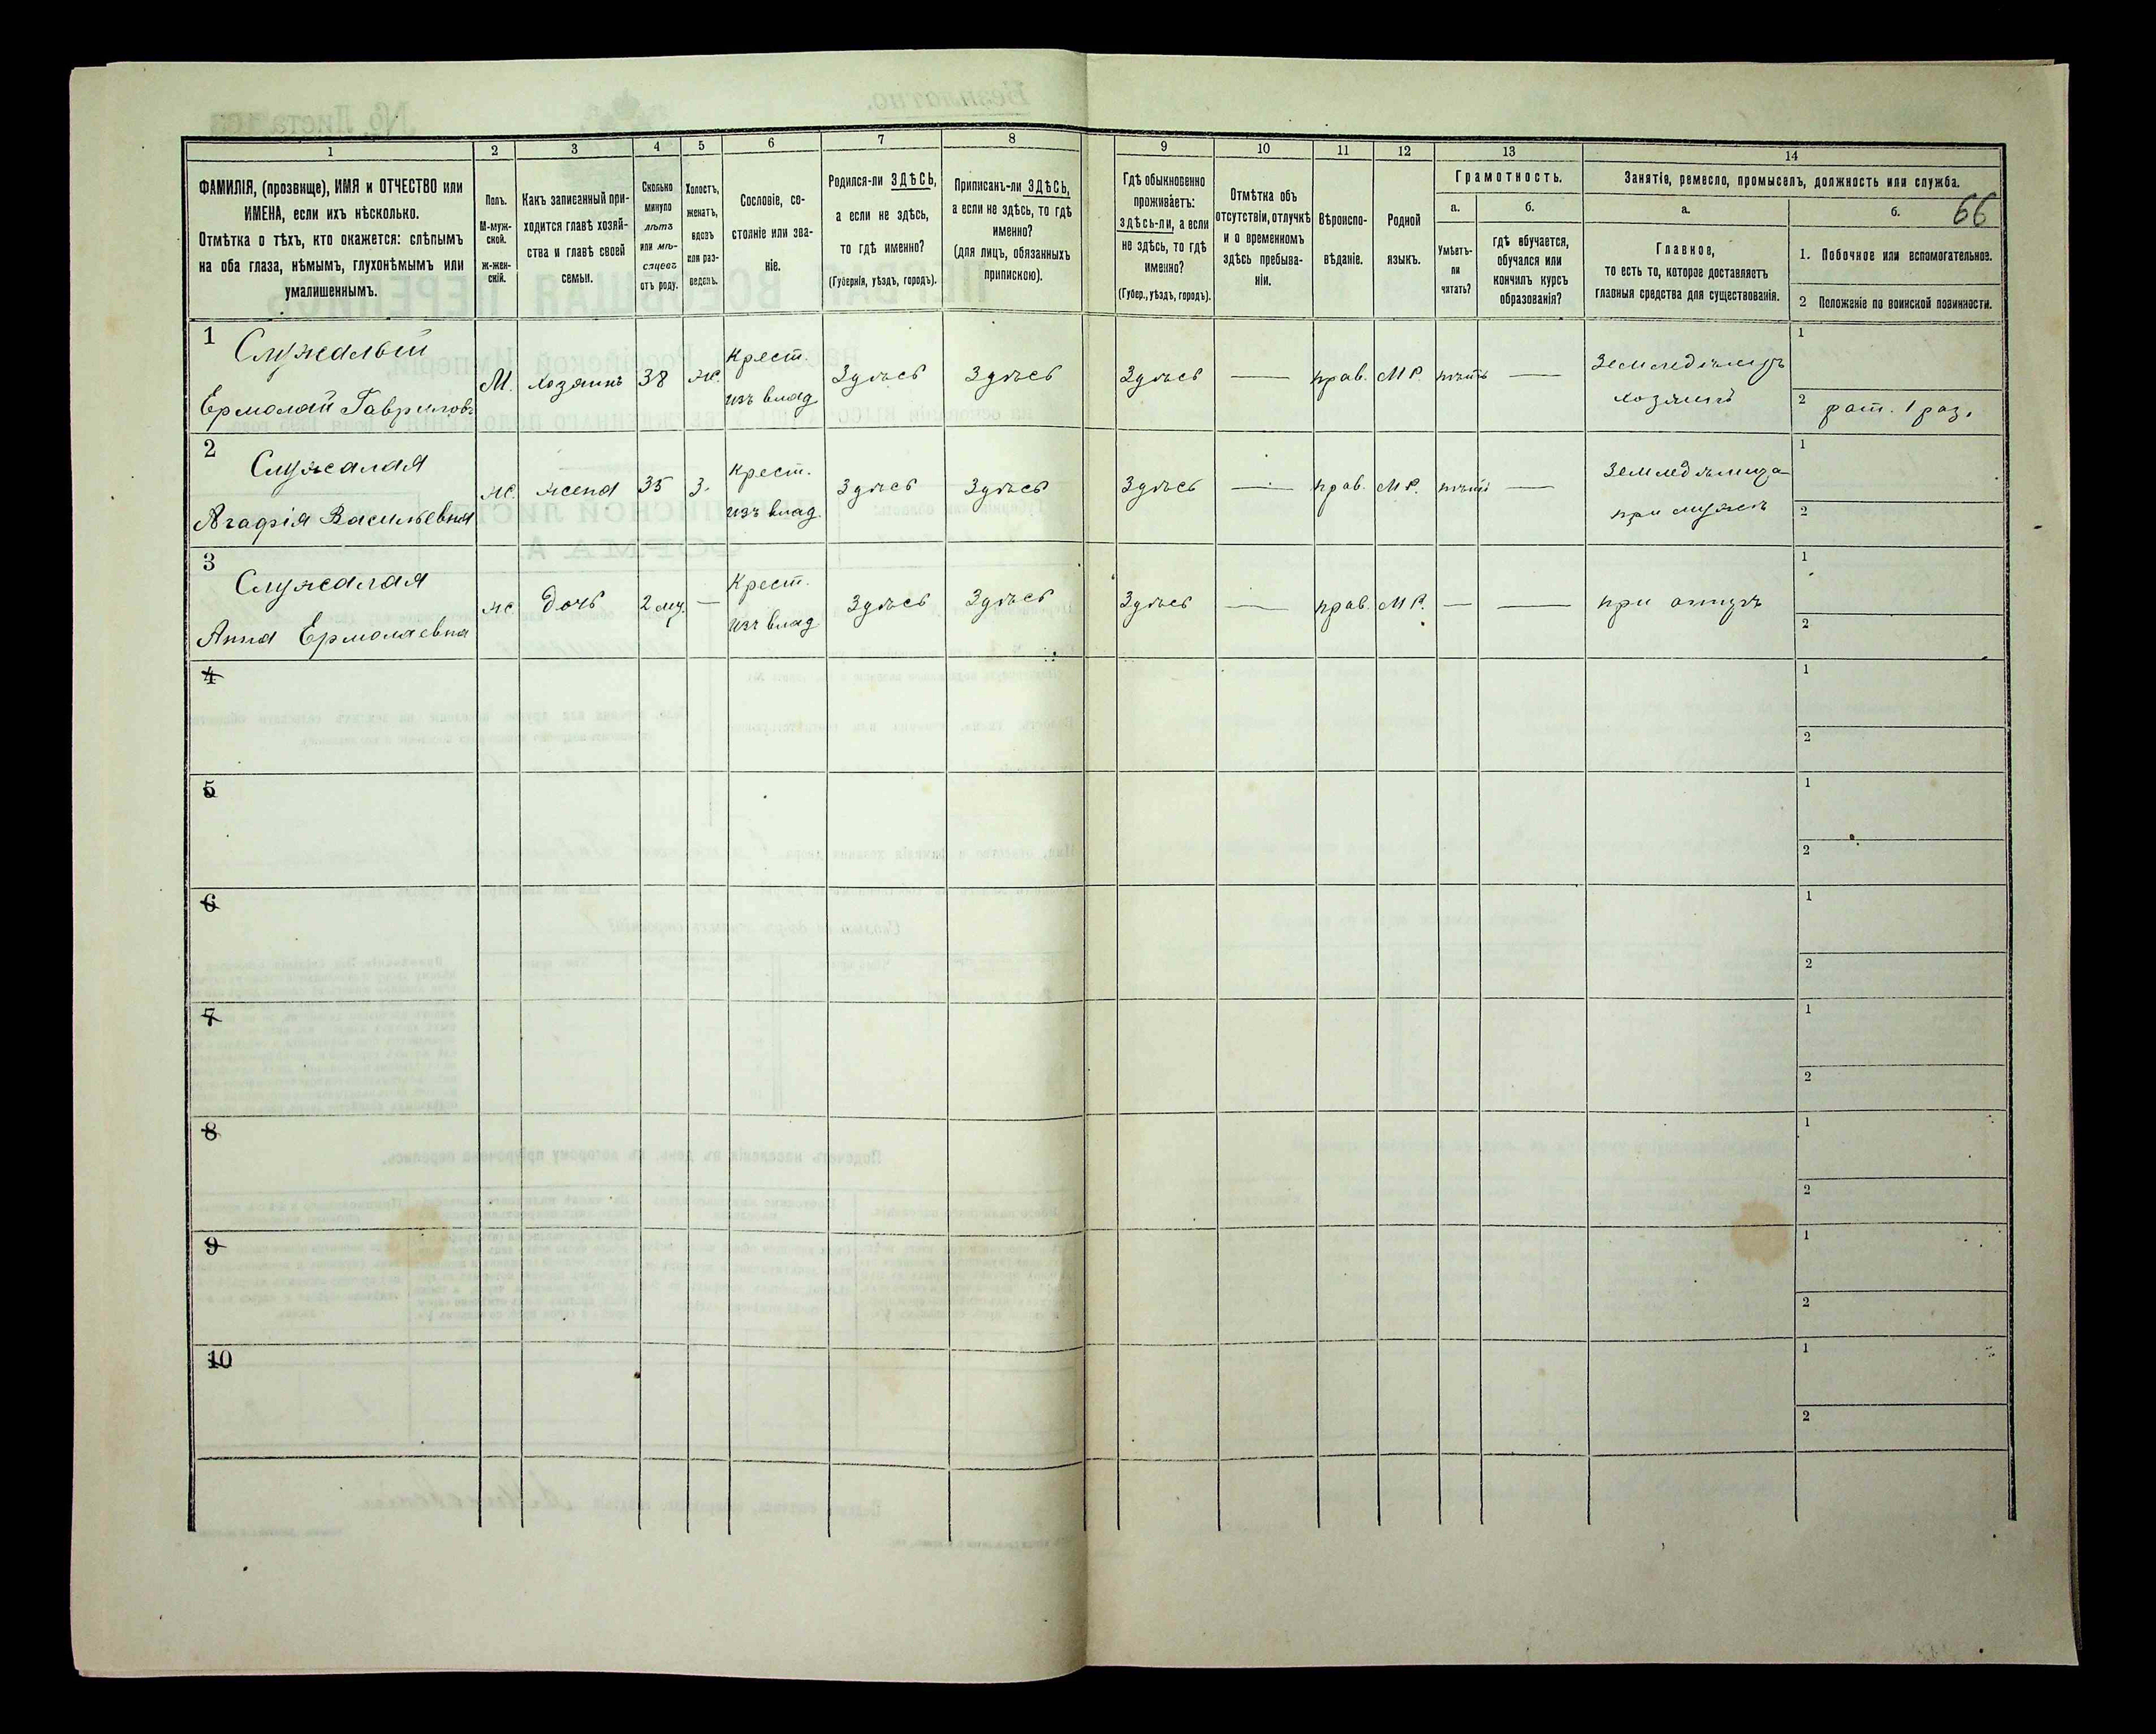 1
2
3
4
5
6
7
8
9
10
11
12
13
14
ФАМИЛІЯ, (прозвище), ИМЯ и ОТЧЕСТВО или
ИМЕНА, если ихъ нѣсколько.
Отмѣтка о тѣхъ, кто окажется: слѣпымъ
на оба глаза, нѣмымъ, глухонѣмымъ или
умалишеннымъ.
Полъ.
М-муж-
ской.
ж-жен-
скій.
Какъ записанный при-
ходится главѣ хозяй-
ства и главѣ своей
семьи.
Сколько
минуло
лѣтъ
или мѣ-
сяцевъ
отъ роду.
Холостъ,
женатъ,
вдовъ
или раз-
веденъ.
Сословіе, со-
стояніе или зва-
ніе.
Родился-ли ЗДѢСЬ,
а если не здѣсь,
то гдѣ именно?
(Губернія, уѣздъ, городъ).
Приписанъ-ли ЗДѢСЬ,
а если не здѣсь, то гдѣ
именно?
(для лицъ, обязанныхъ
припискою).
Гдѣ обыкновенно
проживаетъ:
здѣсь-ли, а если
не здѣсь, то гдѣ
именно?
(Губер., уѣздъ, городъ).
Отмѣтка объ
отсутствіи, отлучкѣ
и о временномъ
здѣсь пребыва-
ніи.
Вѣроиспо-
вѣданіе.
Родной
языкъ.
Грамотность.
а.
Умѣетъ-
ли
читать?
б.
гдѣ обучается,
обучался или
кончилъ курсъ
образованія?
Занятіе, ремесло, промыселъ, должность или служба.
а.
Главное,
то есть то, которое доставляетъ
главныя средства для существованія.
б.
66
1. Побочное или вспомогательное.
2 Положеніе по воинской повинности.
1
Служалый
Ермолай Гавриловъ
М. хозяинъ 38 ж. Крест.
изъ влад. Здѣсь Здѣсь Здѣсь — прав. МР. нѣтъ — Земледѣлецъ
хозяинъ
1
2 рат. 1 раз.
2
Служалая
Агафія Васильевна
ж. жена 35 з. Крест.
изъ влад. Здѣсь Здѣсь Здѣсь — прав. МР. нѣтъ — Земледѣлица
при мужѣ
1
2
3
Служалая
Анна Ермолаевна
ж. дочь 2 мц. — Крест.
изъ влад Здѣсь Здѣсь Здѣсь — прав. МР. — — при отцѣ
1
2
4
1
2
5
1
2
6
1
2
7
1
2
8
1
2
9
1
2
10
1
2